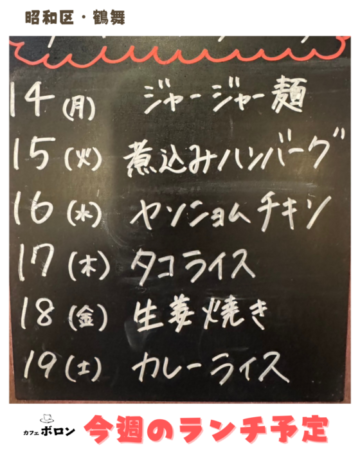 昭和区・鶴舞
14(月) ジャージャー麺
15(火) 煮込みハンバーグ
16(水) ヤンニョムチキン
17(木) タコライス
18(金) 生姜焼き
19(土) カレーライス
カフェ ボロン 今週のランチ予定